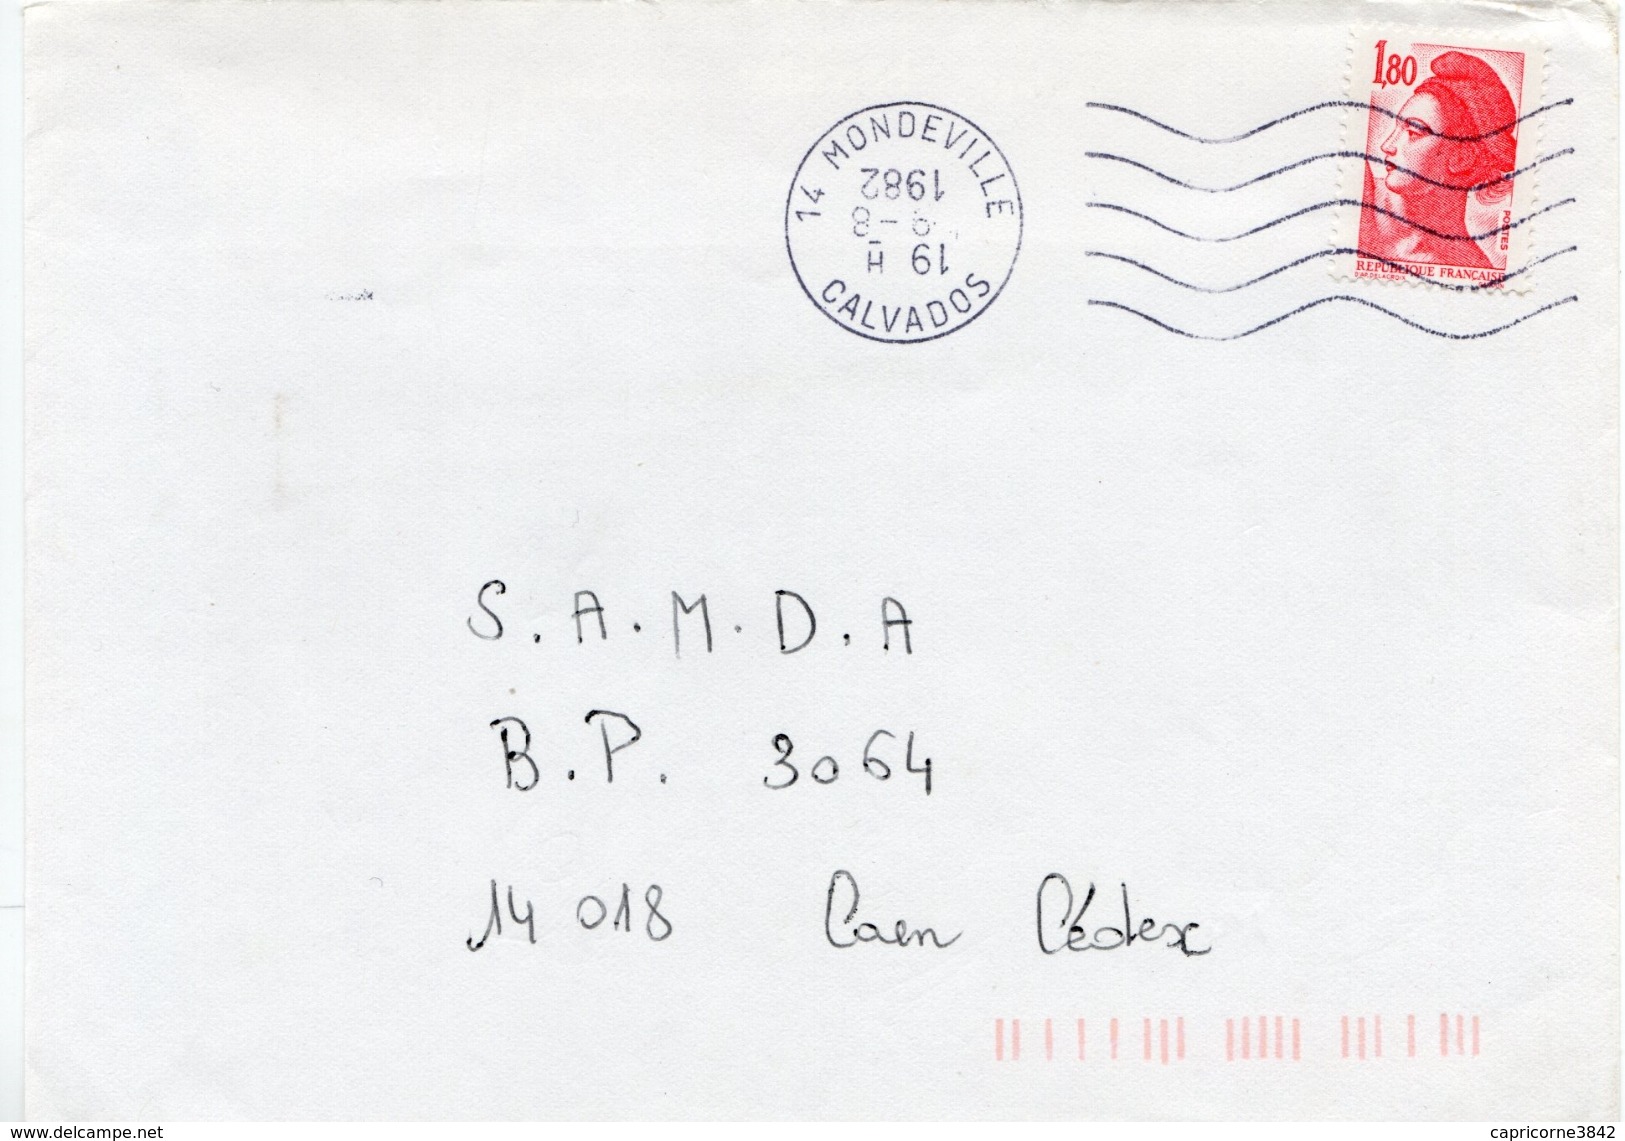 1,80
POSTES
REPUBLIQUE FRANÇAISE
D'AP. DELACROIX
14 MONDEVILLE
19 H
8
1982
CALVADOS
S.A.M.D.A
B.P. 3064
14 018 Caen Cédex
www.delcampe.net
capricorne3842